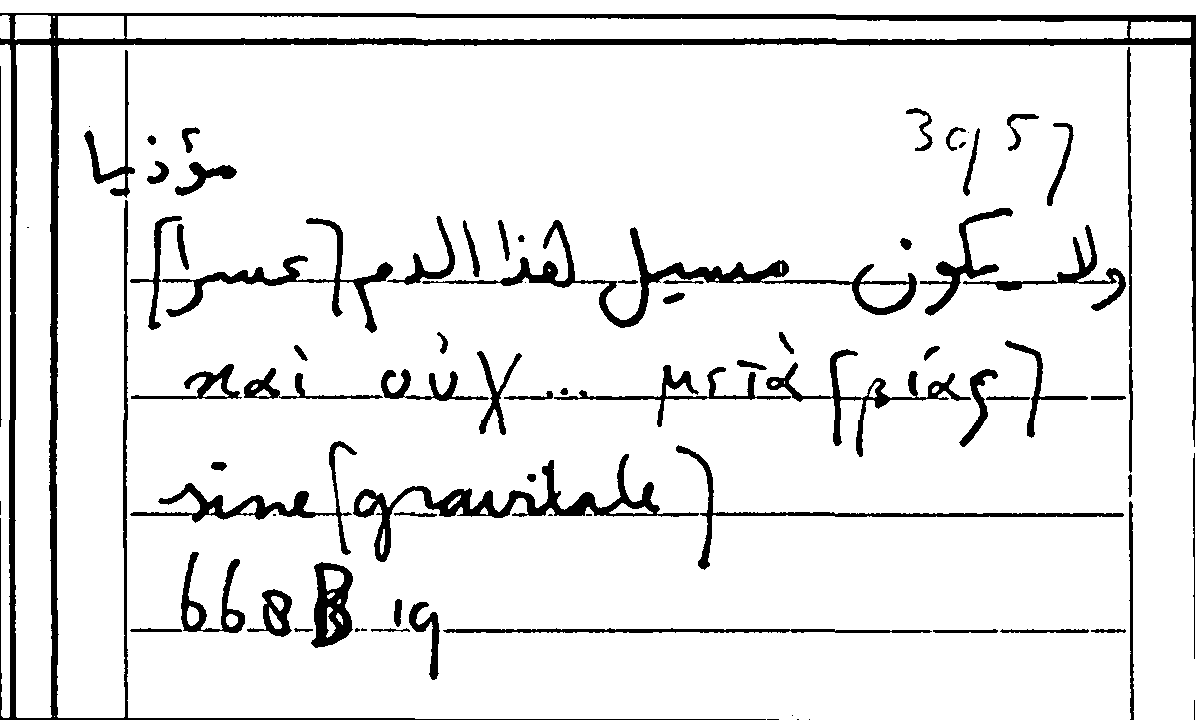 30957
مؤذيا
ولا يكون مسيل هذا الدم [عسرا]
καὶ οὐχ ... μετὰ [βίας]
sine [gravitate]
668 B 19